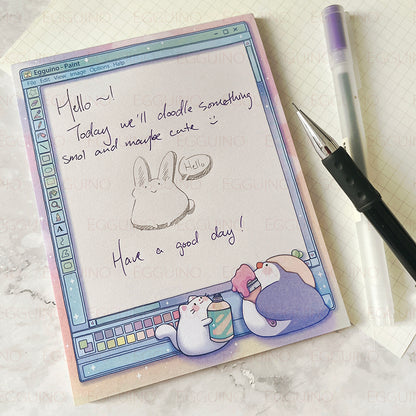 Egguino - Paint
File Edit View Image Options Help
Hello ~!
Today we'll doodle something
smol and maybe cute :)
Hello
Have a good day!
A
EGGUINO